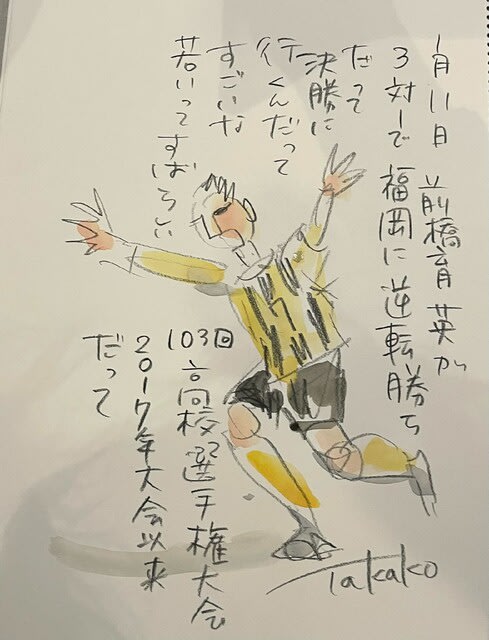 1月11日 前橋育英が
3対1で 福岡に逆転勝ち
だって
決勝に
行くんだって
すごいな
若いってすばらしい
103回
高校選手権大会
2017年大会以来
だって
Takako